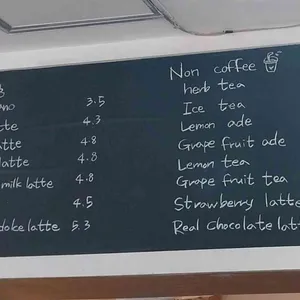 3.5
4.3
4.8
latte 4.8
milk latte 4.8
4.5
latte 5.3
Non coffee
herb tea
Ice tea
Lemon ade
Grape fruit ade
Lemon tea
Grape fruit tea
Strawberry latte
Real chocolate latt